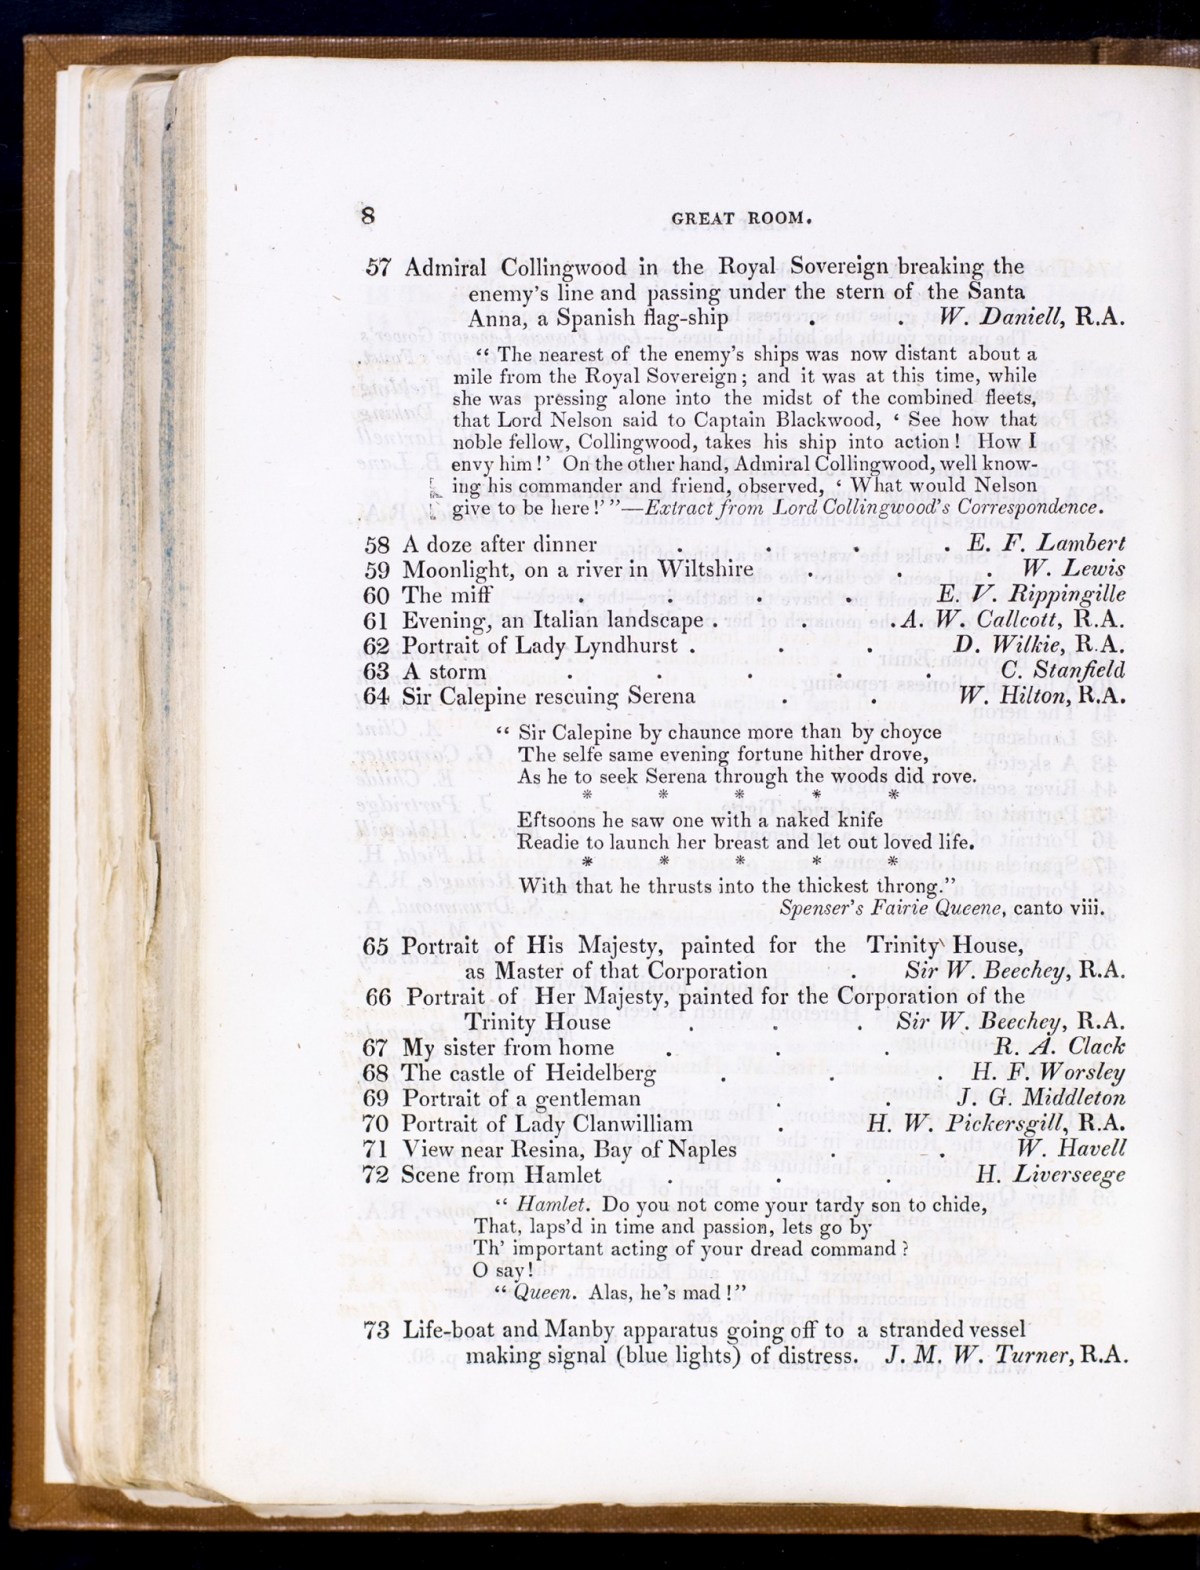 8 GREAT ROOM.
57 Admiral Collingwood in the Royal Sovereign breaking the
enemy's line and passing under the stern of the Santa
Anna, a Spanish flag-ship . . W. Daniell, R.A.
“ The nearest of the enemy's ships was now distant about a
mile from the Royal Sovereign; and it was at this time, while
she was pressing alone into the midst of the combined fleets,
that Lord Nelson said to Captain Blackwood, ‘ See how that
noble fellow, Collingwood, takes his ship into action! How I
envy him!’ On the other hand, Admiral Collingwood, well know-
ing his commander and friend, observed, ‘ What would Nelson
give to be here!’”—Extract from Lord Collingwood's Correspondence.
58 A doze after dinner . . . . E. F. Lambert
59 Moonlight, on a river in Wiltshire . . . W. Lewis
60 The miff . . . . E. V. Rippingille
61 Evening, an Italian landscape . . . A. W. Callcott, R.A.
62 Portrait of Lady Lyndhurst . . . D. Wilkie, R.A.
63 A storm . . . . C. Stanfield
64 Sir Calepine rescuing Serena . . W. Hilton, R.A.
“ Sir Calepine by chaunce more than by choyce
The selfe same evening fortune hither drove,
As he to seek Serena through the woods did rove.
* * * * *
Eftsoons he saw one with a naked knife
Readie to launch her breast and let out loved life.
* * * * *
With that he thrusts into the thickest throng.”
Spenser's Fairie Queene, canto viii.
65 Portrait of His Majesty, painted for the Trinity House,
as Master of that Corporation . Sir W. Beechey, R.A.
66 Portrait of Her Majesty, painted for the Corporation of the
Trinity House . . . Sir W. Beechey, R.A.
67 My sister from home . . . R. A. Clack
68 The castle of Heidelberg . . . H. F. Worsley
69 Portrait of a gentleman . . J. G. Middleton
70 Portrait of Lady Clanwilliam . H. W. Pickersgill, R.A.
71 View near Resina, Bay of Naples . . W. Havell
72 Scene from Hamlet . . . H. Liverseege
“ Hamlet. Do you not come your tardy son to chide,
That, laps'd in time and passion, lets go by
Th' important acting of your dread command?
O say!
“ Queen. Alas, he's mad!”
73 Life-boat and Manby apparatus going off to a stranded vessel
making signal (blue lights) of distress. J. M. W. Turner, R.A.